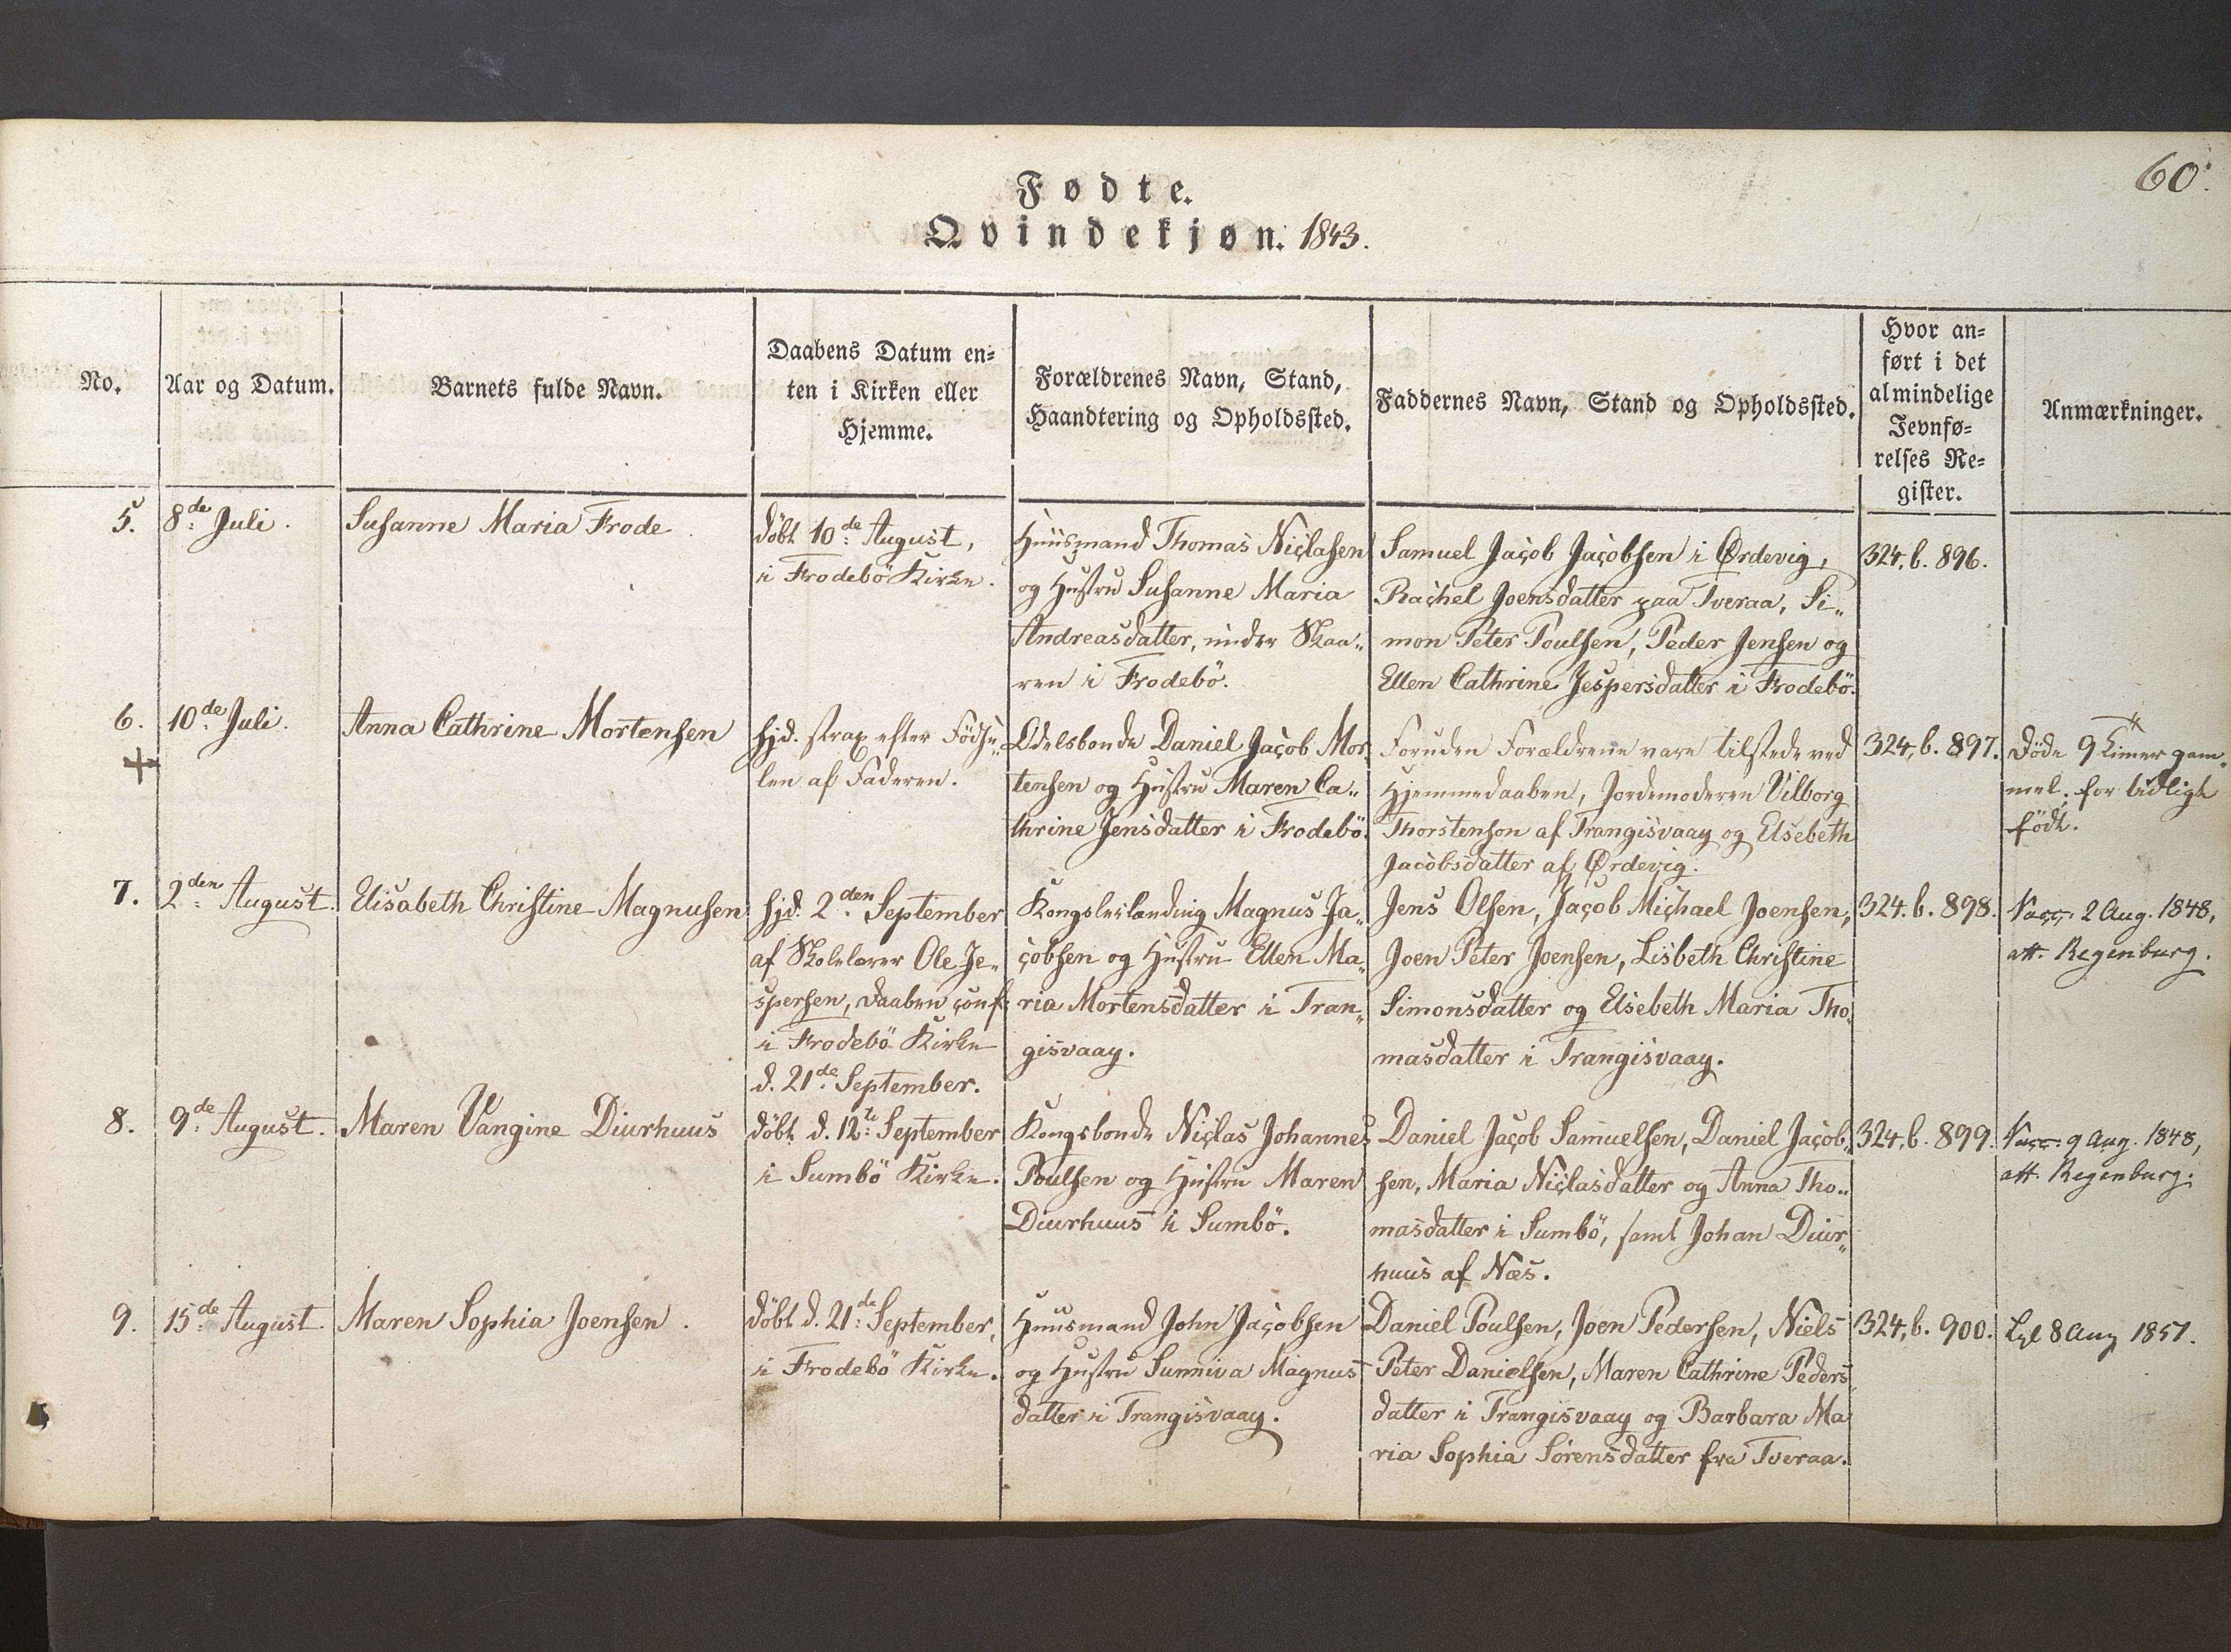 60.
Fødte.
Qvindekjøn. 1843.
No.
Aar og Datum.
Barnets fulde Navn.
Daabens Datum en=
ten i Kirken eller
Hjemme.
Forældrenes Navn, Stand,
Haandtering og Opholdssted.
Faddernes Navn, Stand og Opholdssted.
Hvor an=
ført i det
almindelige
Jevnfø=
relses Re=
gister.
Anmærkninger.
5.
8de Juli.
Susanne Maria Frode
døbt 10de August,
i Frodebö Kirke.
Huusmand Thomas Niclasen
og Hustru Susanne Maria
Andreasdatter, under Skaa„
ren i Frodebö.
Samuel Jacob Jacobsen i Ørdevig,
Rachel Joensdatter paa Tveraa, Si„
mon Peter Poulsen, Peder Jensen og
Ellen Cathrine Jespersdatter i Frodebö.
324, b. 896.
6.
+
10de Juli.
Anna Cathrine Mortensen
hjd. strax efter Födse„
len af Faderen.
Odelsbonde Daniel Jacob Mor„
tensen og Hustru Maren Ca„
thrine Jensdatter i Frodebö.
Foruden Forældrene vare tilstede ved
Hjemmedaaben, Jordemoderen Vilborg
Thorstenson af Trangisvaag og Elsebeth
Jacobsdatter af Ørdevig.
324, b. 897.
Döde 9 Timer gam„
mel; for tidligt
født.
7.
2den August.
Elisabeth Christine Magnusen
hjd. 2den September
af Skolelærer Ole Je„
spersen, Daaben conf.
i Frodebö Kirke
d. 21de September.
Kongsleilænding Magnus Ja„
cobsen og Hustru Ellen Ma„
ria Mortensdatter i Tran„
gisvaag.
Jens Olsen, Jacob Michael Joensen,
Joen Peter Joensen, Lisbeth Christine
Simonsdatter og Elsebeth Maria Tho„
masdatter i Trangisvaag.
324. b. 898.
Vacc. 2 Aug. 1848,
att. Regenburg.
8.
9de August.
Maren Vangine Diurhuus
döbt d. 12te September
i Sumbö Kirke.
Kongsbonde Niclas Johannes
Poulsen og Hustru Maren
Diurhuus i Sumbö.
Daniel Jacob Samuelsen, Daniel Jacob„
sen, Maria Niclasdatter og Anna Tho„
masdatter i Sumbö, samt Johan Diur„
huus af Næs.
324, b. 899.
Vacc. 9 Aug. 1848,
att. Regenburg.
9.
15de August.
Maren Sophia Joensen.
döbt d. 21de September,
i Frodebö Kirke.
Huusmand John Jacobsen
og Hustru Sunniva Magnus
datter i Trangisvaag.
Daniel Poulsen, Joen Pedersen, Niels
Peter Danielsen, Maren Cathrine Peders
datter i Trangisvaag og Barbara Ma
ria Sophia Sörensdatter fra Tveraa.
324, b. 900.
8 Aug 1851.